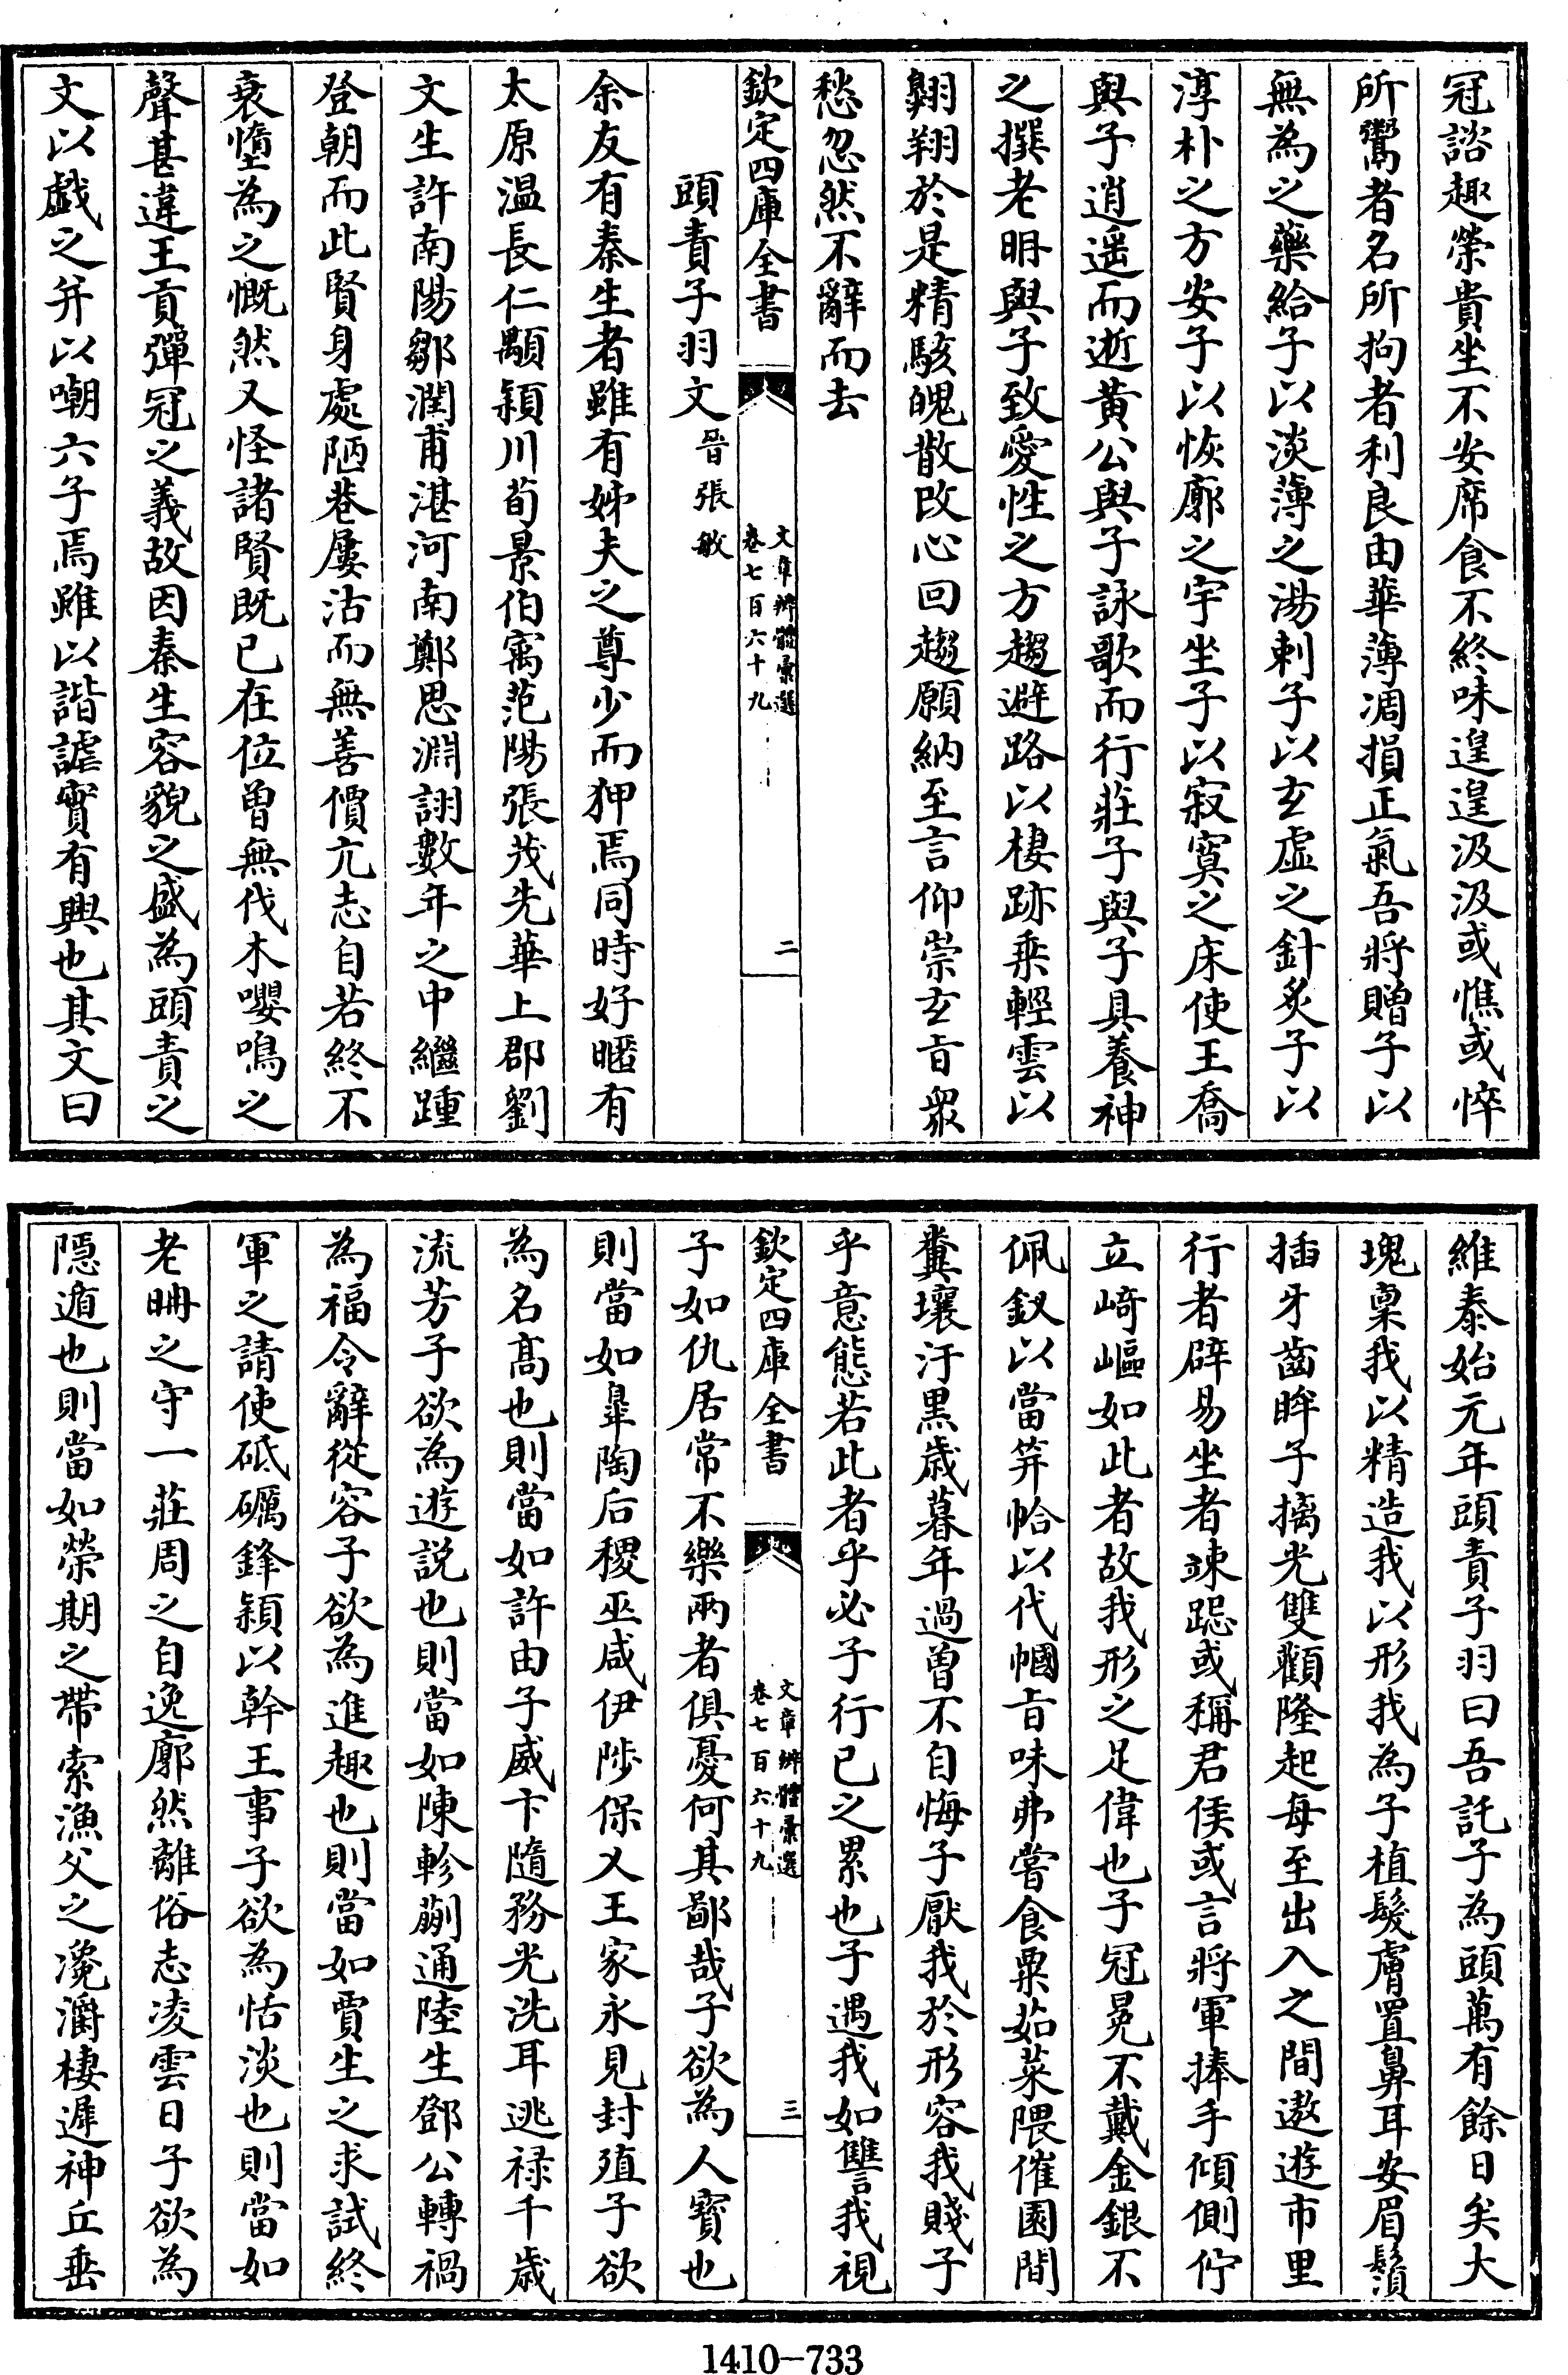 冠諮趣榮貴坐不安席食不終味遑遑汲汲或憔或悴
所鬻者名所拘者利良由華薄凋損正氣吾將贈子以
無為之藥給子以淡薄之湯刺子以玄虛之針炙子以
淳朴之方安子以恢廓之宇坐子以寂寞之床使王喬
與子逍遥而逝黄公與子詠歌而行莊子與子具養神
之撰老聃與子致愛性之方趨避路以棲跡乘輕雲以
翺翔於是精駭魄散改心回趨願納至言仰崇玄旨衆
愁忽然不辭而去
欽定四庫全書
文章辨體彙選
卷七百六十九
二
頭責子羽文晉張敏
余友有秦生者雖有姊夫之尊少而狎焉同時好暱有
太原温長仁顒潁川荀景伯寓范陽張茂先華上郡劉
文生許南陽鄒潤甫湛河南鄭思淵詡數年之中繼踵
登朝而此賢身處陋巷屢沽而無善價亢志自若終不
衰惰為之慨然又怪諸賢既已在位曾無伐木嚶鳴之
聲甚違王貢彈冠之義故因秦生容貌之盛為頭責之
文以戯之并以嘲六子焉雖以諧謔實有興也其文曰
維泰始元年頭責子羽曰吾託子為頭萬有餘日矣大
塊稟我以精造我以形我為子植髮膚置鼻耳安眉鬚
插牙齒眸子摛光雙顴隆起每至出入之間遨遊市里
行者辟易坐者竦跽或稱君侯或言將軍捧手傾側佇
立崎嶇如此者故我形之足偉也子冠冕不戴金銀不
佩釵以當笄帢以代幗旨味弗嘗食粟茹菜隈傕園間
糞壤汙黑歲暮年過曽不自悔子厭我於形容我賤子
乎意態若此者乎必子行已之累也子遇我如讐我視
欽定四庫全書
文章辨體彙選
卷七百六十九
三
子如仇居常不樂兩者俱憂何其鄙哉子欲為人寳也
則當如臯陶后稷巫咸伊陟保乂王家永見封殖子欲
為名髙也則當如許由子威卞隨務光洗耳逃禄千歲
流芳子欲為遊説也則當如陳軫蒯通陸生鄧公轉禍
為福令辭從容子欲為進趣也則當如賈生之求試終
軍之請使砥礪鋒穎以幹王事子欲為恬淡也則當如
老聃之守一莊周之自逸廓然離俗志凌雲日子欲為
隠遁也則當如榮期之帶索漁父之瀺灂棲遲神丘垂
1410-733